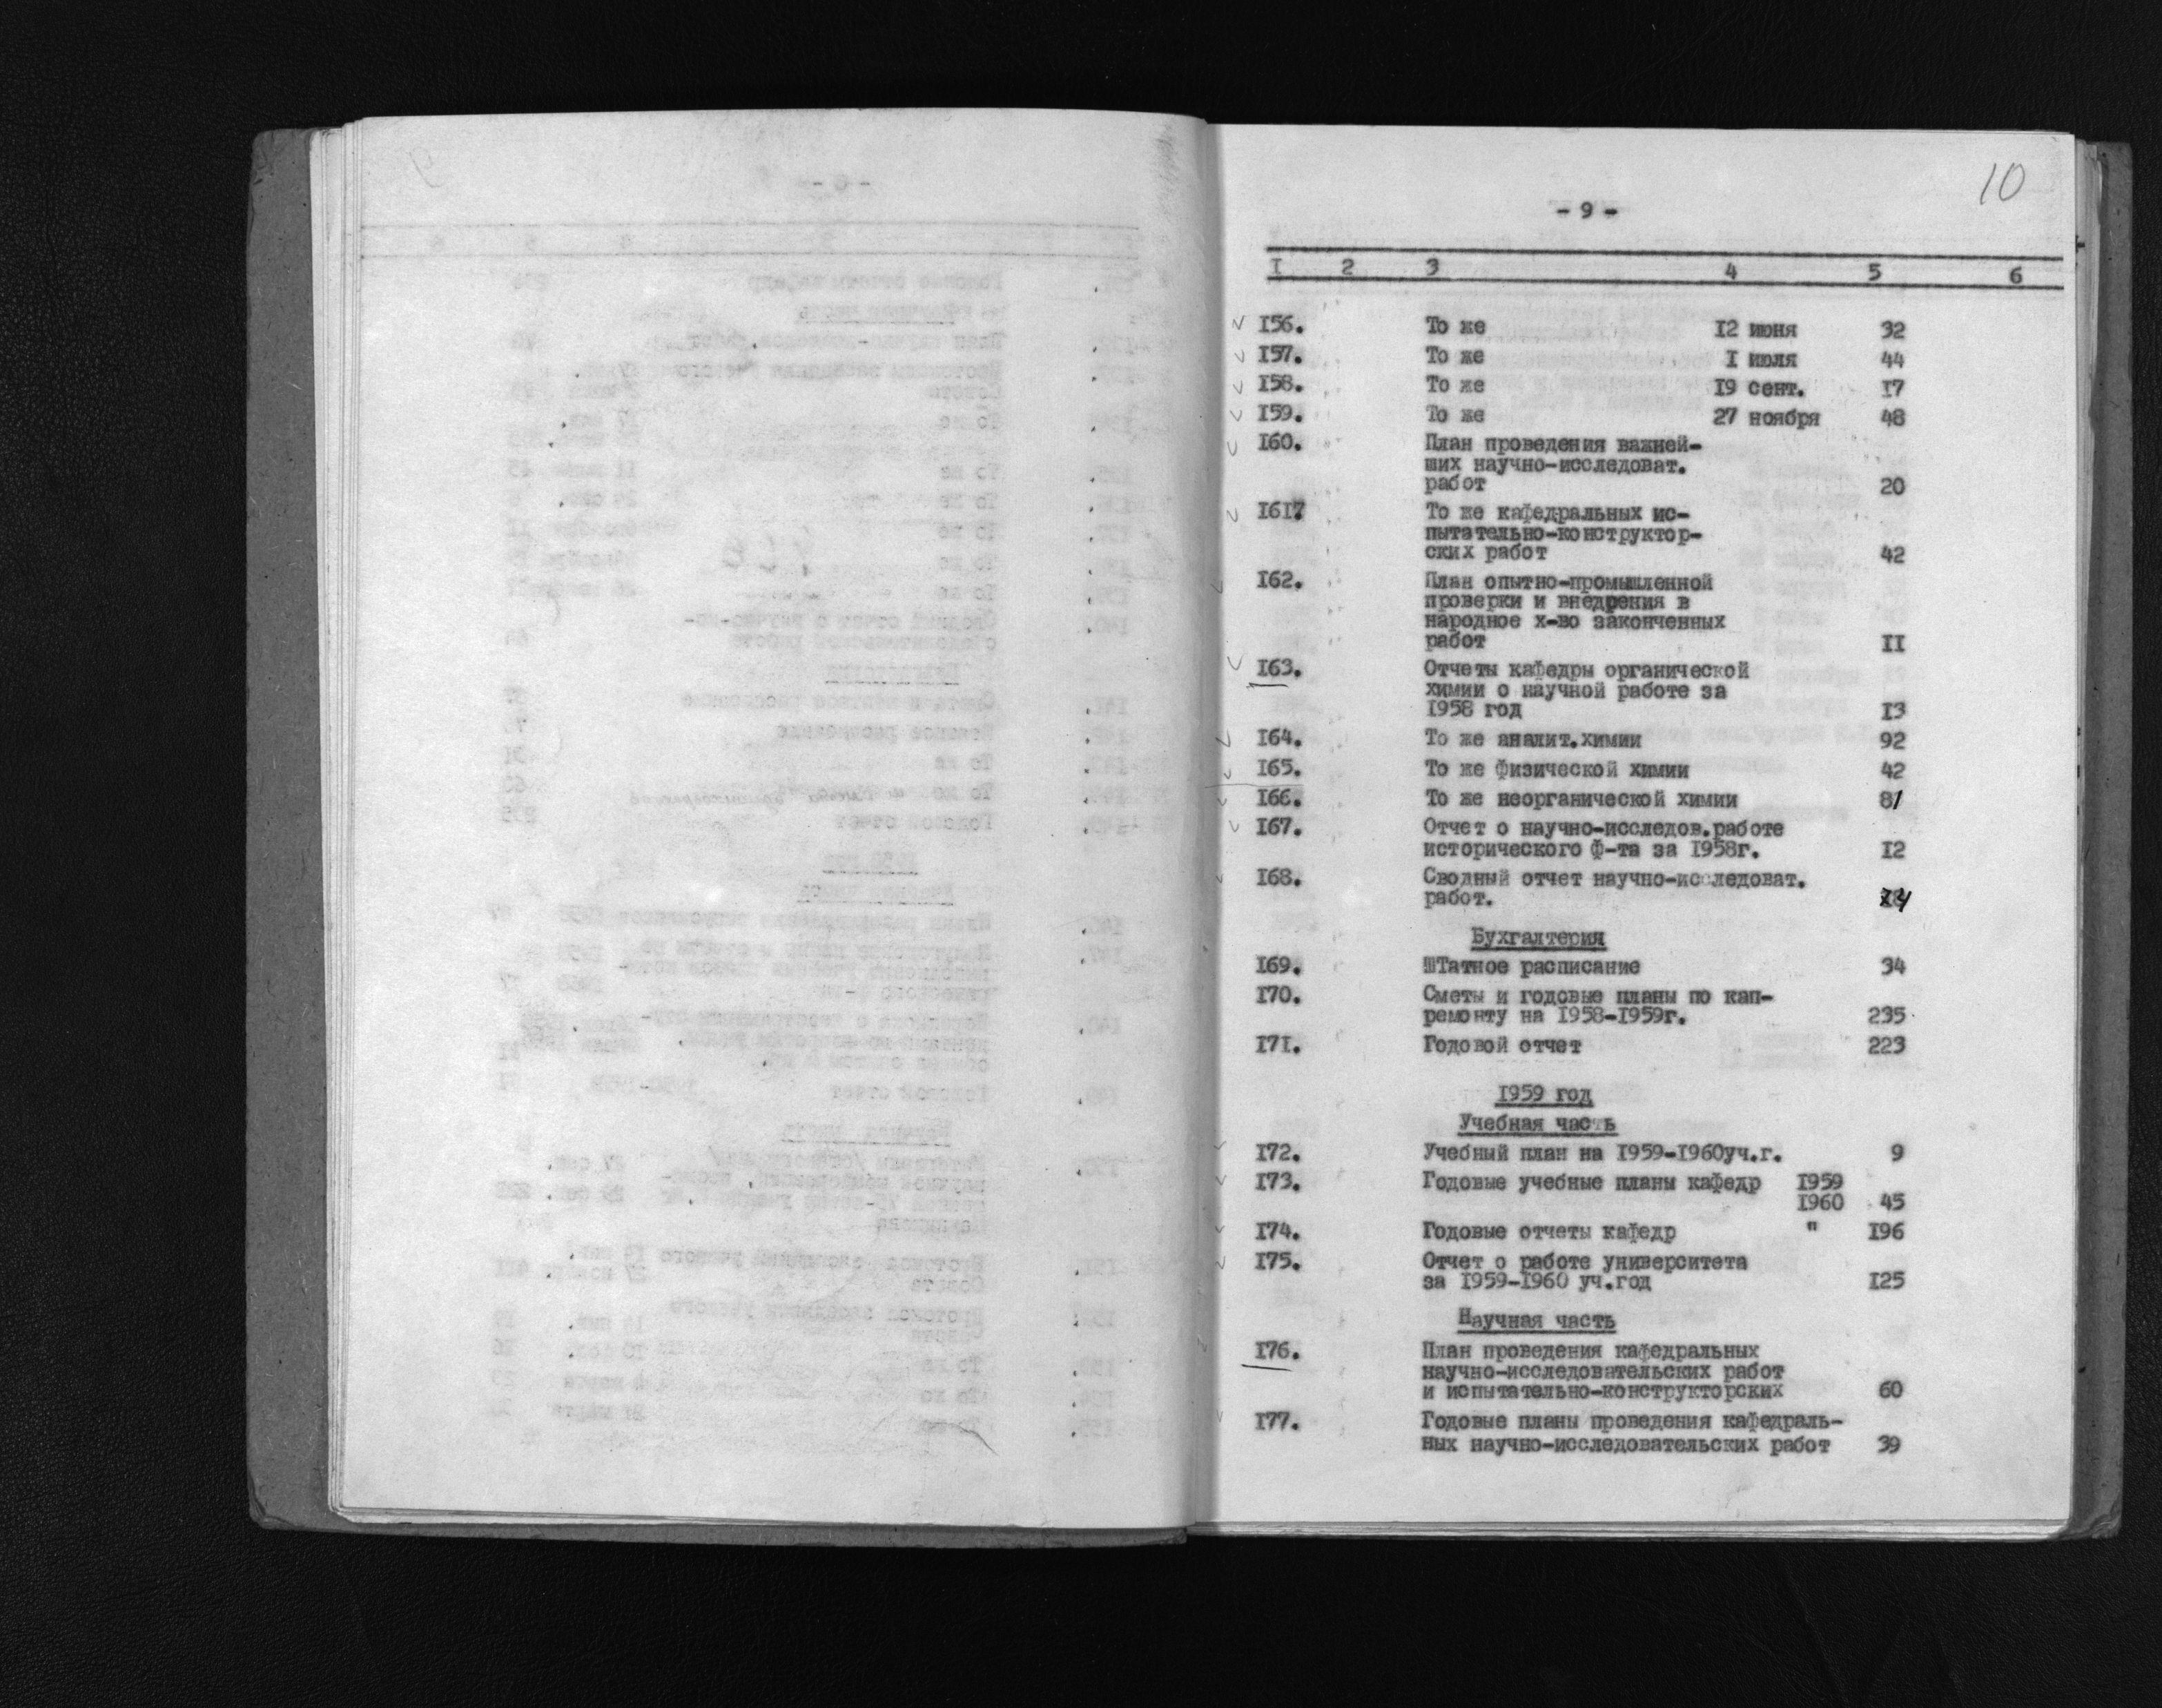 10
- 9 -
I 2 3 4 5 6
I56. То же I2 июня 32
I57. То же I июля 44
I58. То же I9 сент. I7
I59. То же 27 ноября 48
I60. План проведения важней-
ших научно-исследоват.
работ 20
I6I7 То же кафедральных ис-
пытательно-конструктор-
ских работ 42
I62. План опытно-промышленной
проверки и внедрения в
народное х-во законченных
работ II
I63. Отчеты кафедры органической
химии о научной работе за
I958 год I3
I64. То же аналит.химии 92
I65. То же физической химии 42
I66. То же неорганической химии 81
I67. Отчет о научно-исследов.работе
исторического ф-та за I958г. I2
I68. Сводный отчет научно-исследоват.
работ.
Бухгалтерия
I69. ШТатное расписание 34
I70. Сметы и годовые планы по кап-
ремонту на I958-I959г. 235
I7I. Годовой отчет 223
I959 год
Учебная часть
I72. Учебный план на I959-I960уч.г. 9
I73. Годовые учебные планы кафедр I959
I960 45
I74. Годовые отчеты кафедр " I96
I75. Отчет о работе университета
за I959-I960 уч.год I25
Научная часть
I76. План проведения кафедральных
научно-исследовательских работ
и испытательно-конструкторских 60
I77. Годовые планы проведения кафедраль-
ных научно-исследовательских работ 39